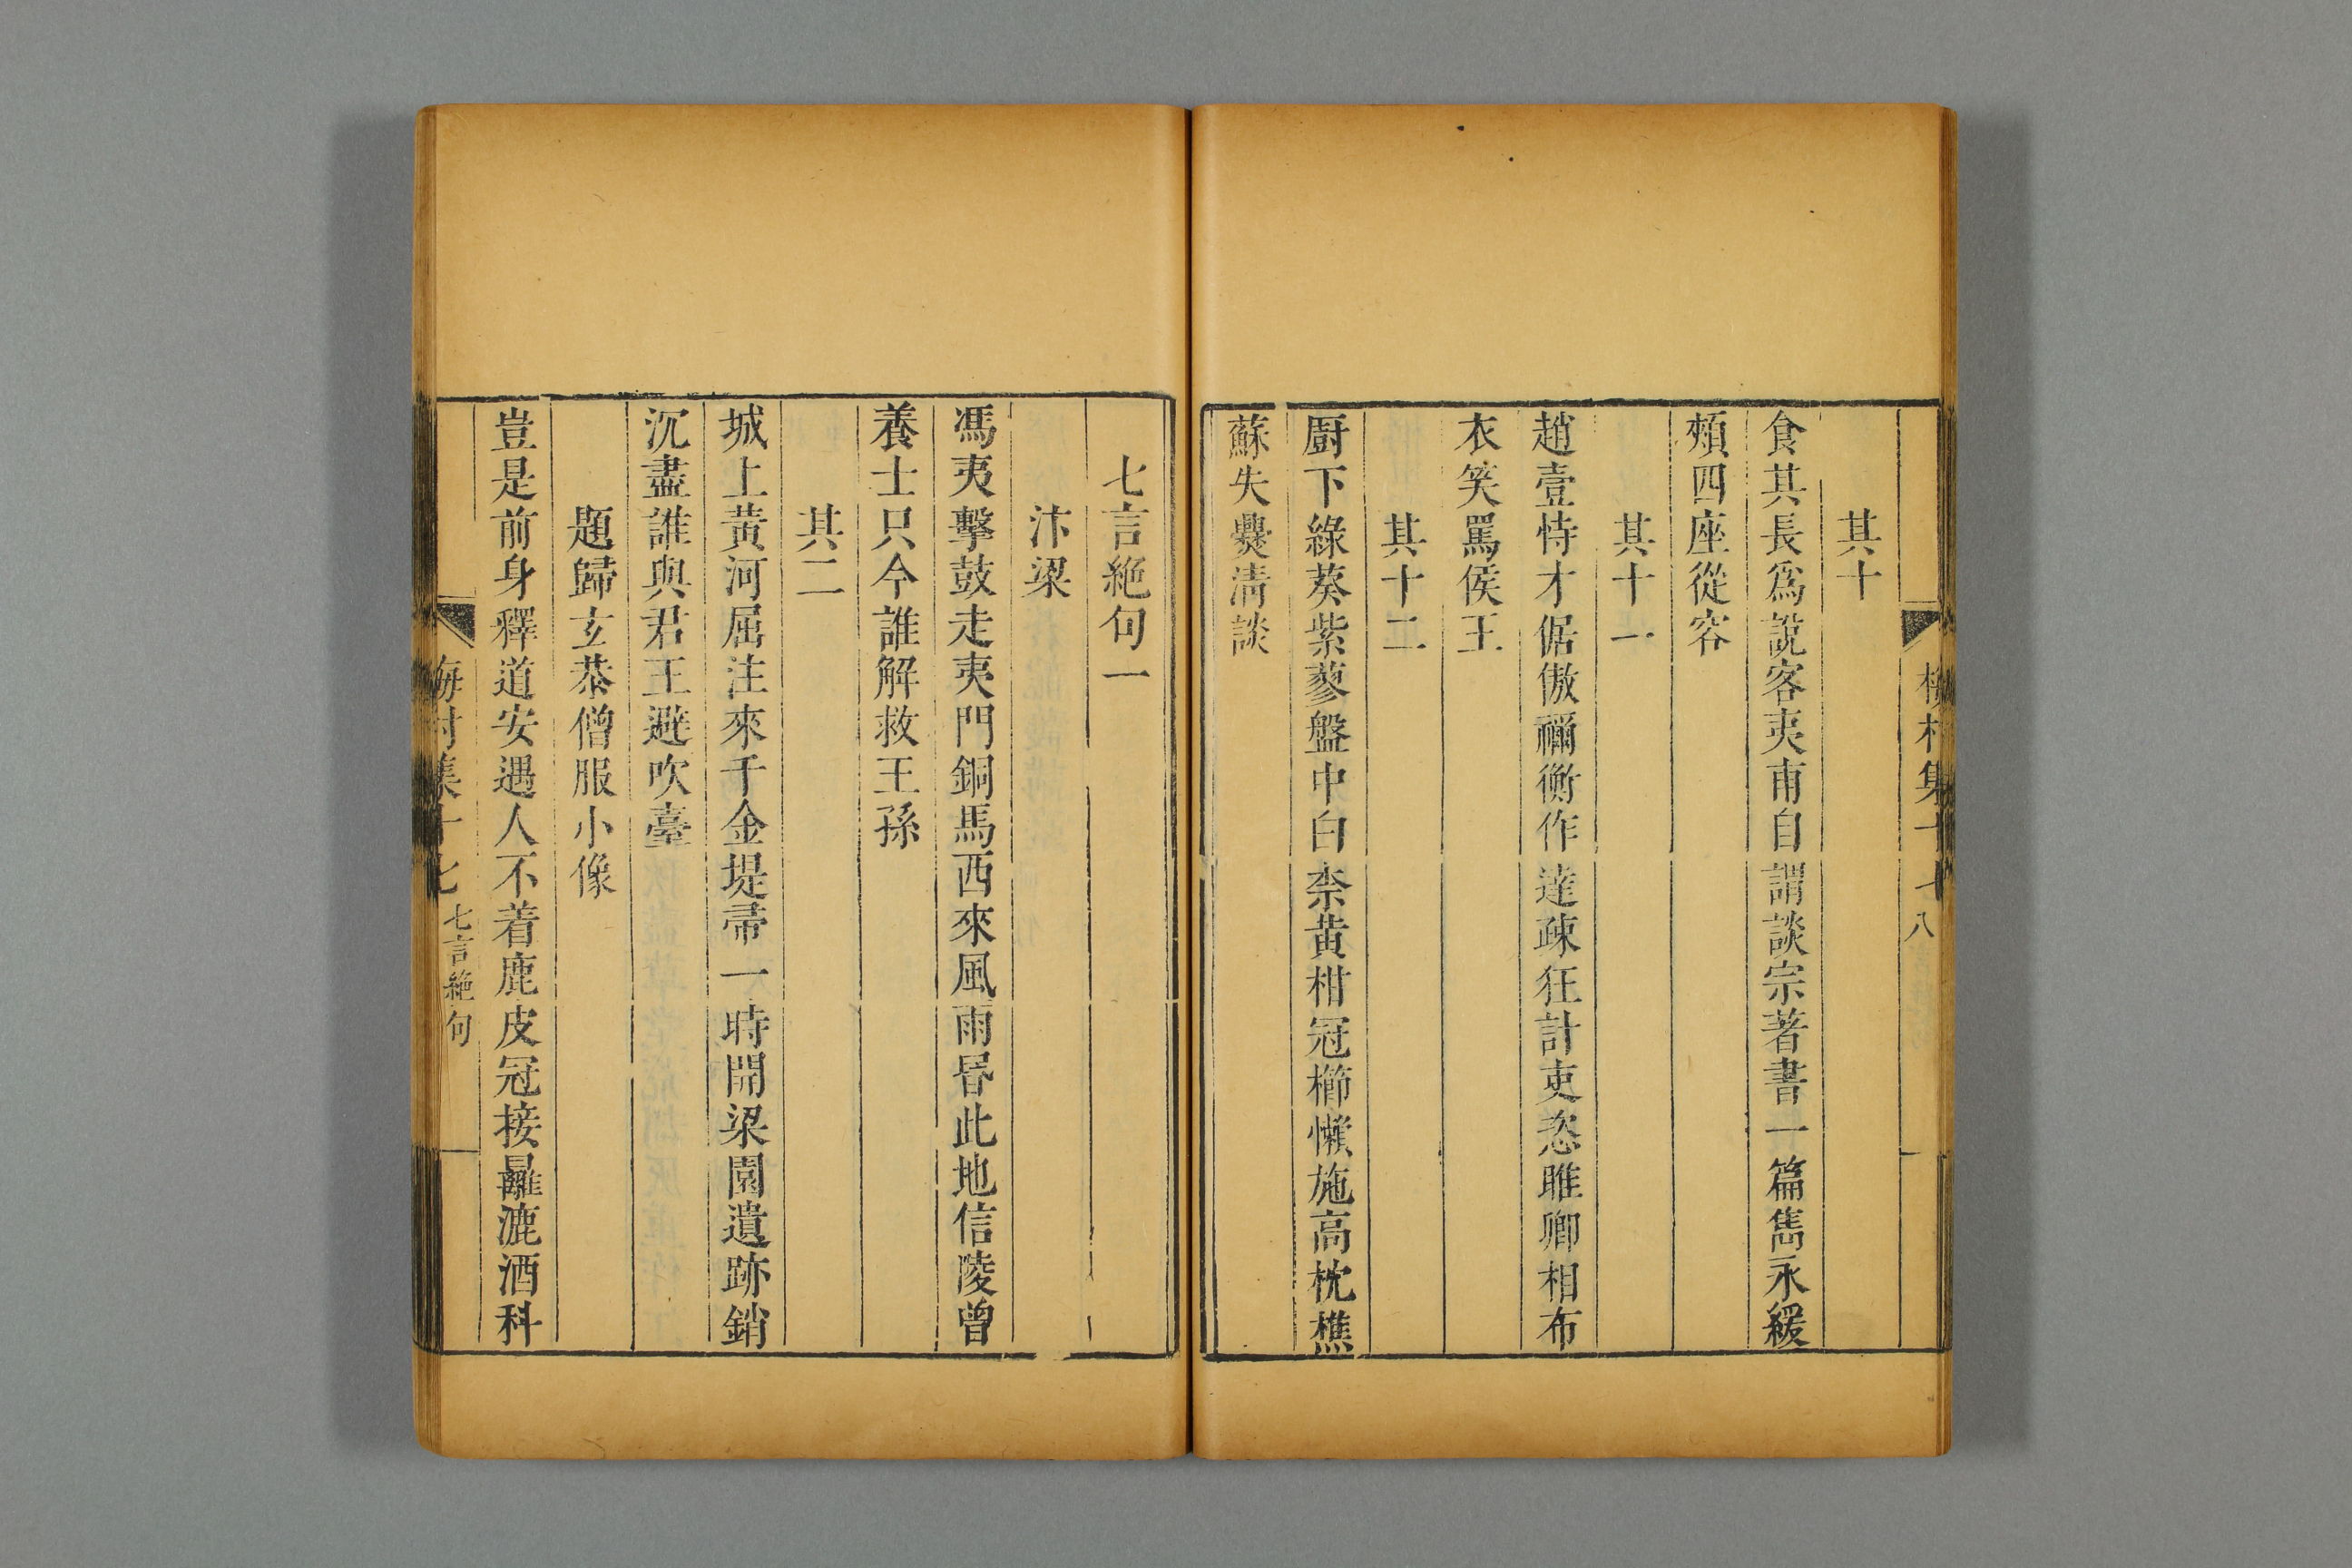 其十
食其長爲說客夷甫自謂談宗著書一篇雋永緩
頰四座從容
其十一
趙壹恃才倨傲禰衡作達疎狂計吏恣睢卿相布
衣笑罵侯王
其十二
厨下綠葵紫蓼盤中白柰黄柑冠櫛懶施高枕樵
蘇失爨淸談
七言絶句一
汴梁
馮夷擊鼓走夷門銅馬西來風雨昬此地信陵曾
養士只今誰解救王孫
其二
城上黃河屈注來千金堤帚一時開梁園遺跡銷
沉盡誰與君王避吹臺
題歸玄恭僧服小像
豈是前身釋道安遇人不着鹿皮冠接䍦漉酒科
梅村集十七 七言絶句